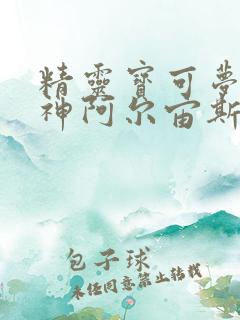 精靈寶可夢
神阿尔宙斯
包子球
未经同意禁止转载